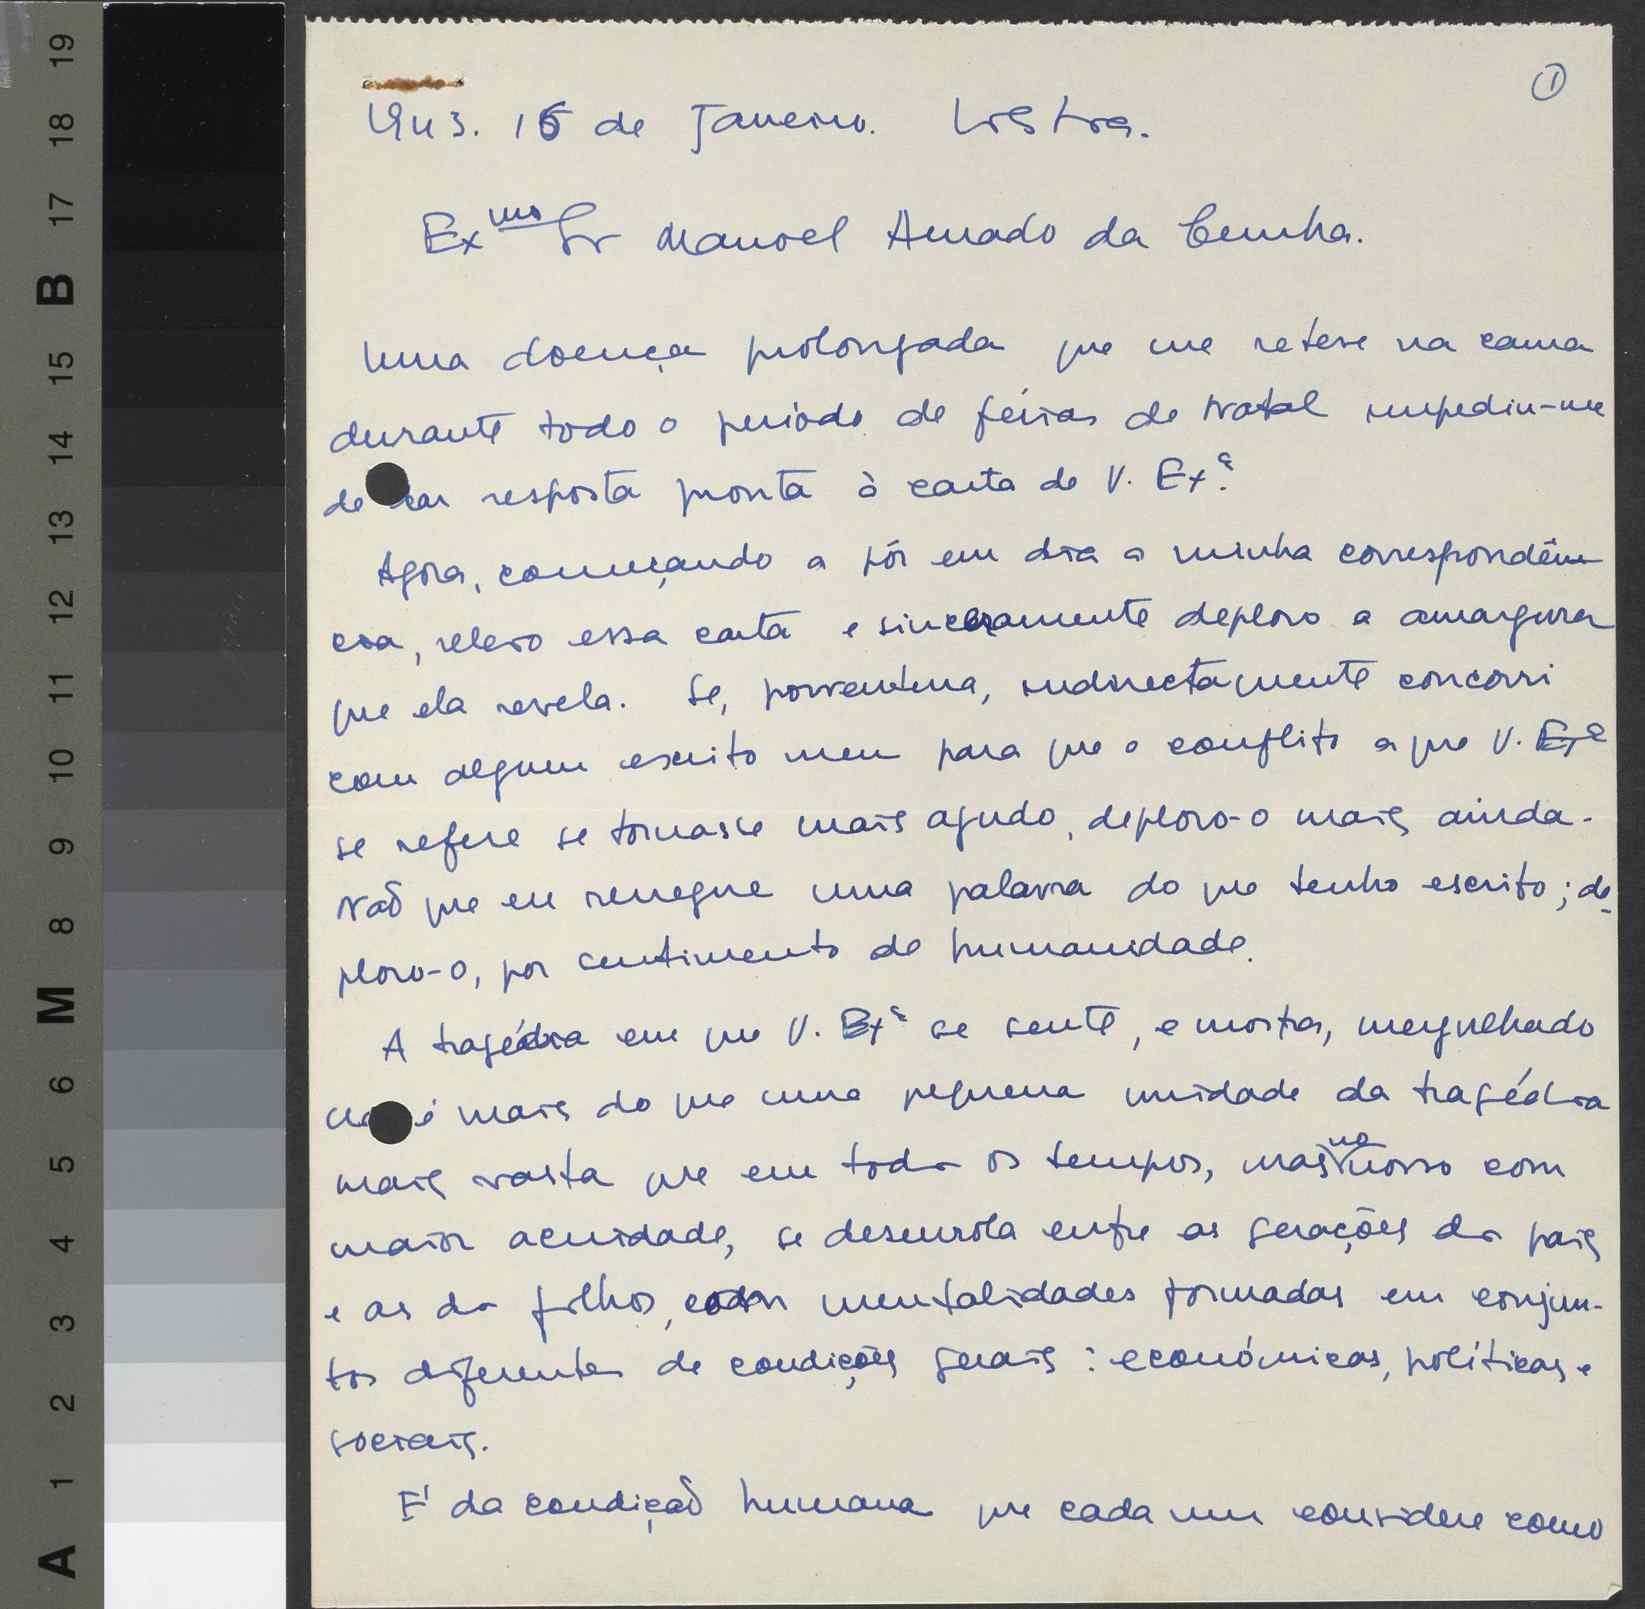 ①
1943. 15 de Janeiro. Lisboa.
Ex.mo Sr Manoel Amado da Cunha.
Uma doença prolongada que me reteve na cama
durante todo o período de férias de Natal impediu-me
de dar resposta pronta à carta de V. Ex.ª
Agora, começando a pôr em dia a minha correspondên-
cia, releio essa carta e sinceramente deploro a amargura
que ela revela. Se, porventura, indirectamente concorri
com algum escrito meu para que o conflito a que V. Exª
se refere se tornasse mais agudo, deploro-o mais ainda.
Não que eu renegue uma palavra do que tenho escrito; de-
ploro-o, por sentimento de humanidade.
A tragédia em que V. Exª se sente, e mostra, mergulhado
não é mais do que uma pequena unidade da tragédia
mais vasta que em todos os tempos, mas no nosso com
maior acuidade, se desenrola entre as gerações dos pais
e as dos filhos, com mentalidades formadas em conjun-
tos diferentes de condições gerais: económicas, políticas e
sociais.
É da condição humana que cada um considere como
19
18
17
B
15
14
13
12
11
10
9
8
M
6
5
4
3
2
1
A